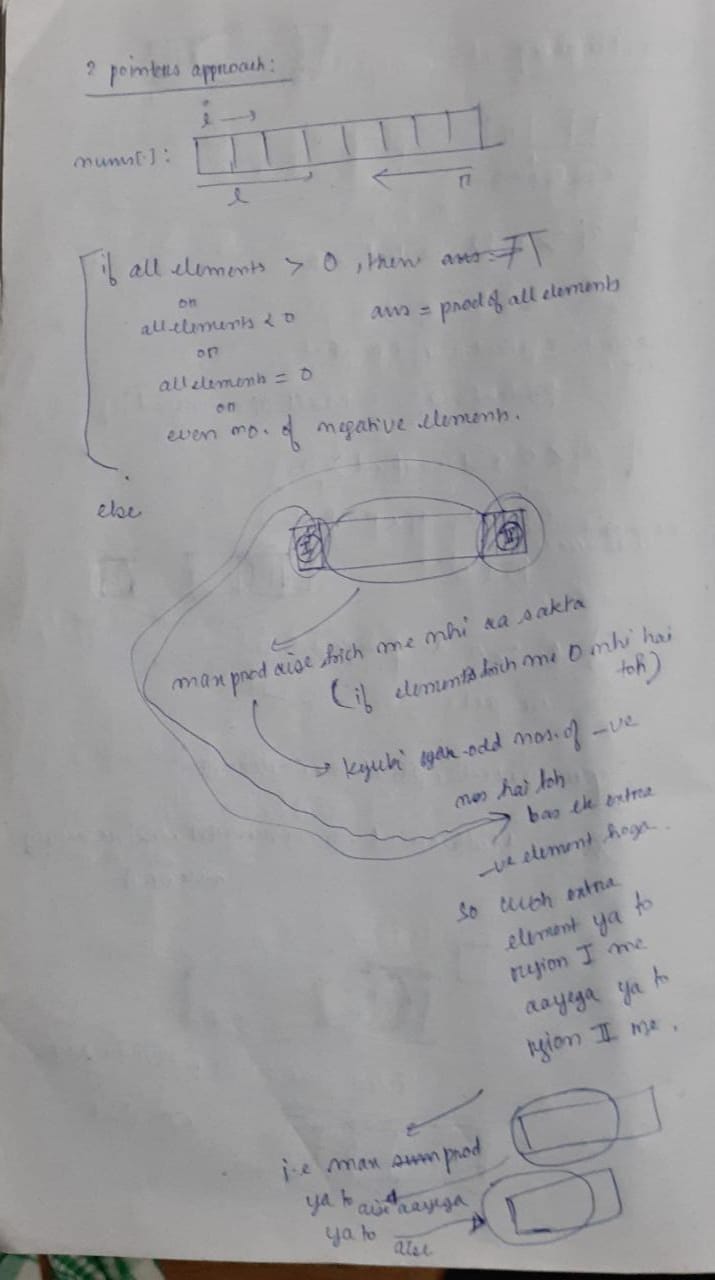 2 pointers approach:
i →
nums[.]:
l
r
if all elements > 0, then ans = π
or
ans = prod of all elements
all elements < 0
or
all elements = 0
or
even no. of negative elements.
else
I
II
max prod aise bich me nhi aa sakta
(if elements bich me 0 nhi hai
toh)
kyuki agar odd nos. of -ve
nos hai toh
bas ek extra
-ve element hoga.
so extra
element ya to
region I me
aayega ya to
region II me.
i.e max sum prod
ya to aise aayega
ya to aise